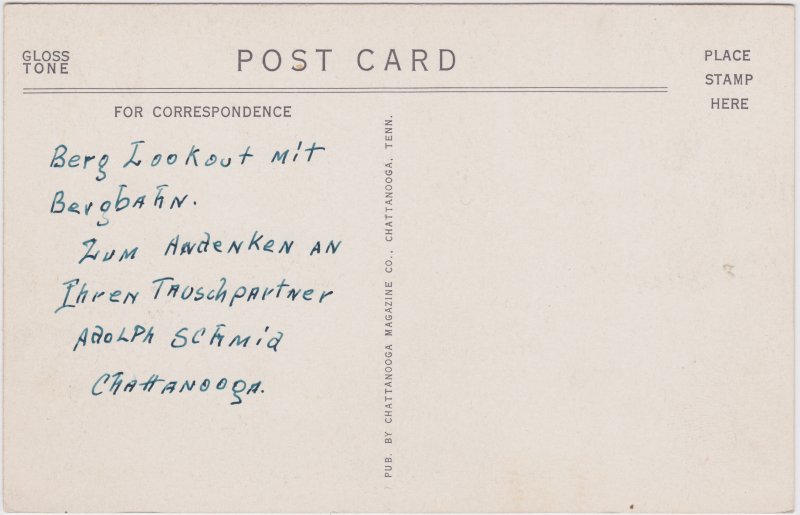 GLOSS
TONE
POST CARD
PLACE
STAMP
HERE
FOR CORRESPONDENCE
Berg Lookout mit
Bergbahn.
Zum Andenken an
Ihren Tauschpartner
Adolph Schmid
Chattanooga.
PUB. BY CHATTANOOGA MAGAZINE CO., CHATTANOOGA, TENN.